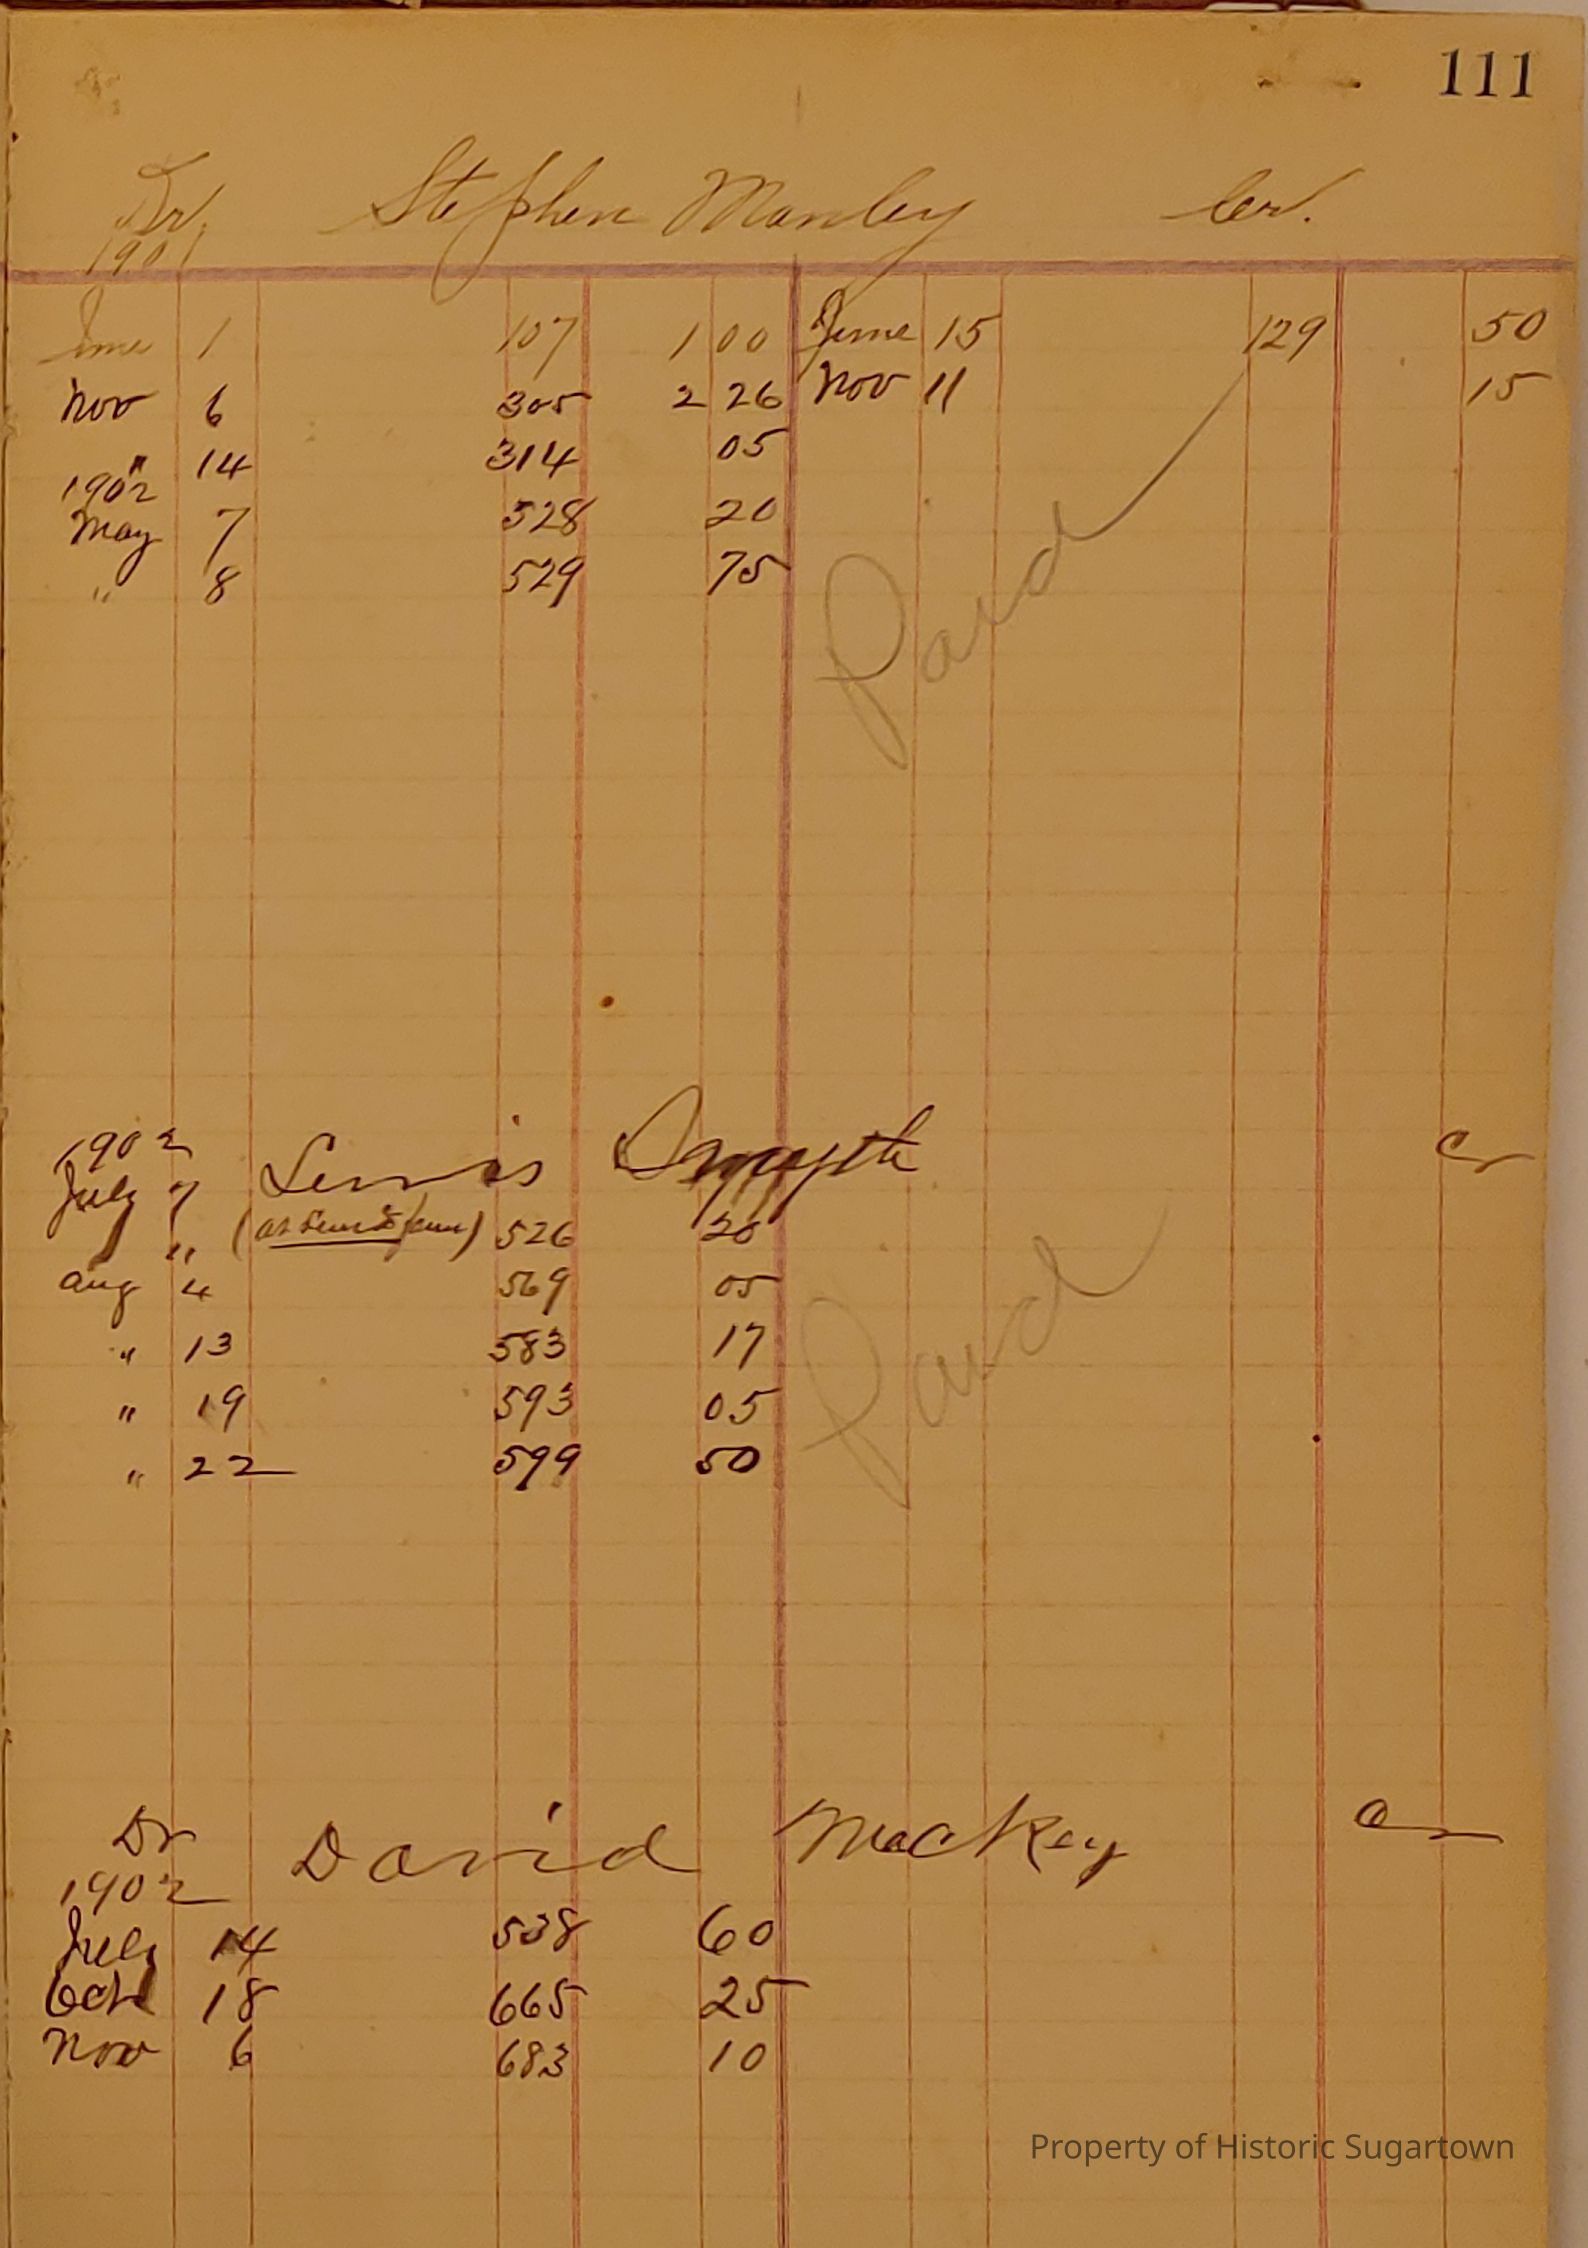 111
Dr. Stephen Manley Cr.
1901
June 1 107 1 00 June 15 129 50
Nov 6 305 2 26 Nov 11 15
" 14 314 05
1902
May 7 528 20
" 8 529 75
Paid
1902 Lewis Smyth Cr
July 7
" 526 20
Aug 4 569 05
" 13 583 17
" 19 593 05
" 22 599 50
Paid
Dr David Mackey Cr
1902
July 14 538 60
Oct 18 665 25
Nov 6 683 10
Property of Historic Sugartown